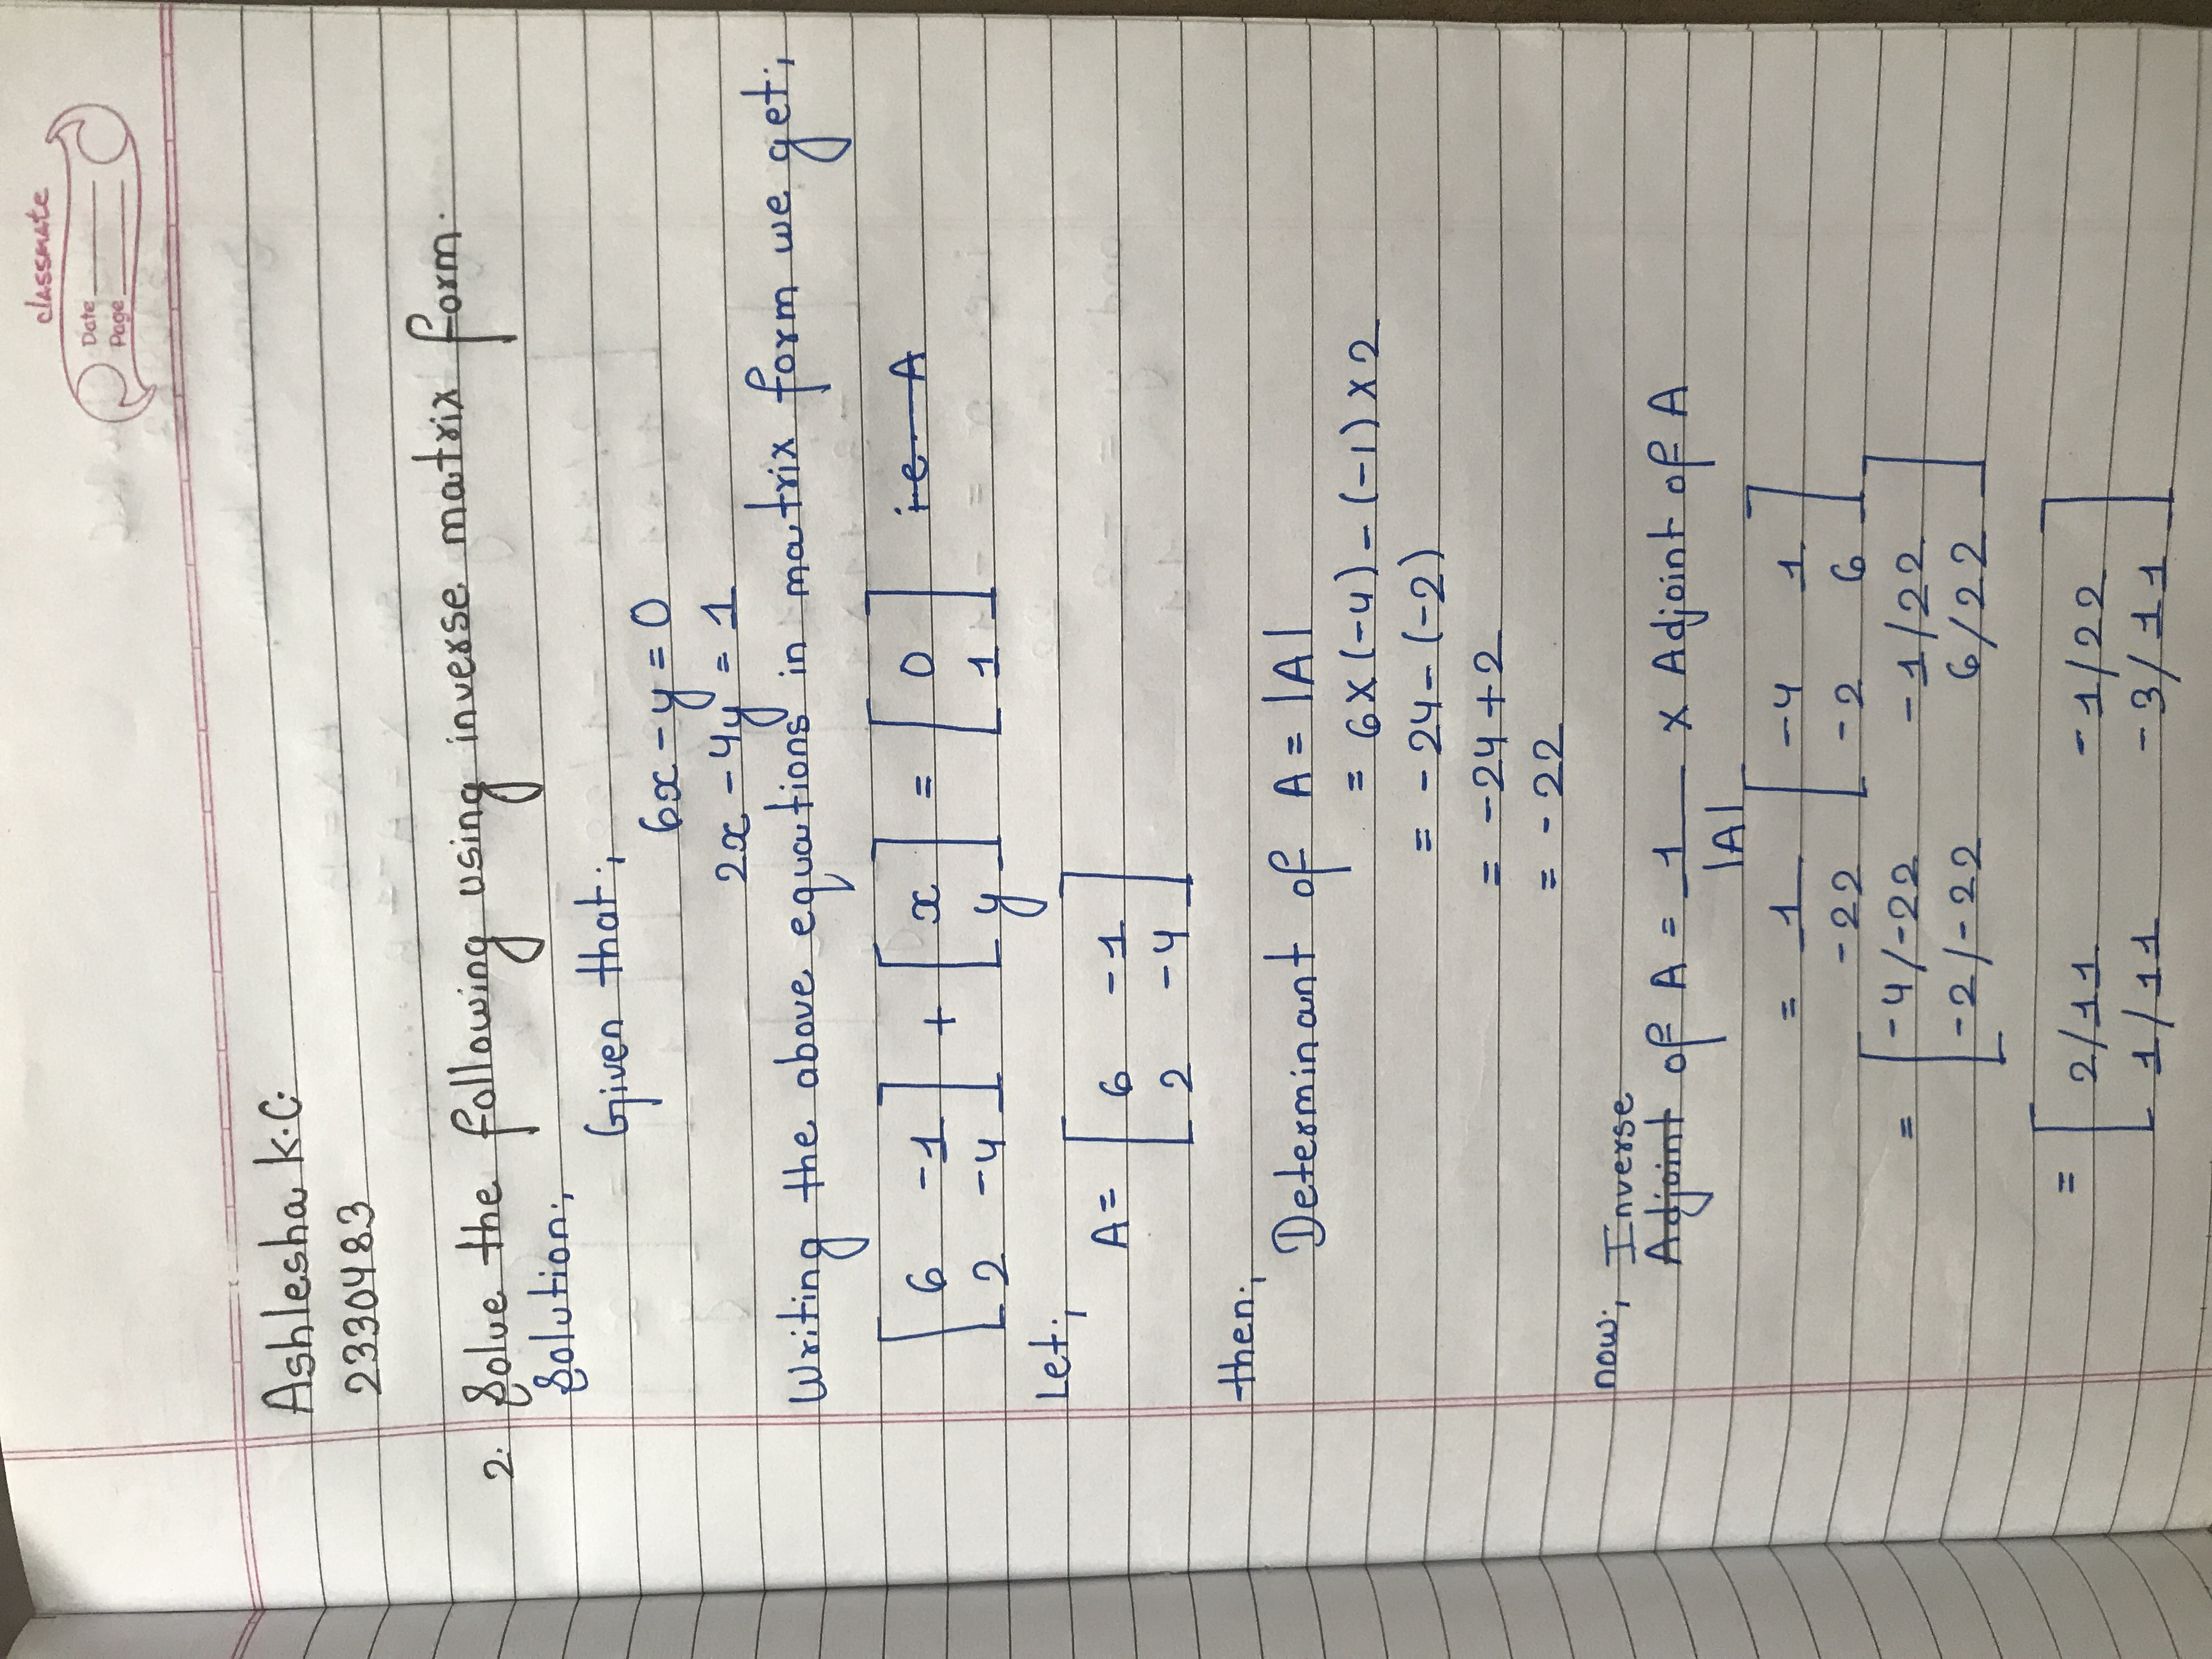 classmate
Date
Page
Ashlesha K.C.
2330483
2. Solve the following using inverse matrix form.
Solution;
Given that;
6x - y = 0
2x - 4y = 1
Writing the above equations in matrix form we get;
[ 6 -1 ] + [ x ] = [ 0 ] i.e. A
[ 2 -4 ] [ y ] [ 1 ]
Let;
A = [ 6 -1 ]
[ 2 -4 ]
then;
Determinant of A = |A|
= 6 x (-4) - (-1) x 2
= -24 - (-2)
= -24 + 2
= -22
now; Inverse
Adjoint of A = 1 x Adjoint of A
|A|
= 1 [ -4 1 ]
-22 [ -2 6 ]
= [ -4/-22 -1/22 ]
[ -2/-22 6/22 ]
= [ 2/11 -1/22 ]
[ 1/11 -3/11 ]